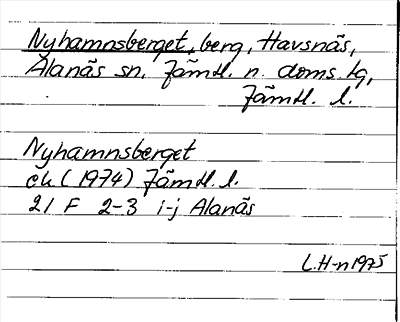 Nyhamnsberget, berg, Havsnäs,
Alanäs sn. Jämtl. n. doms. tg,
Jämtl. l.
Nyhamnsberget
ek (1974) Jämtl. l.
21 F 2-3 i-j Alanäs
L.H-n 1975